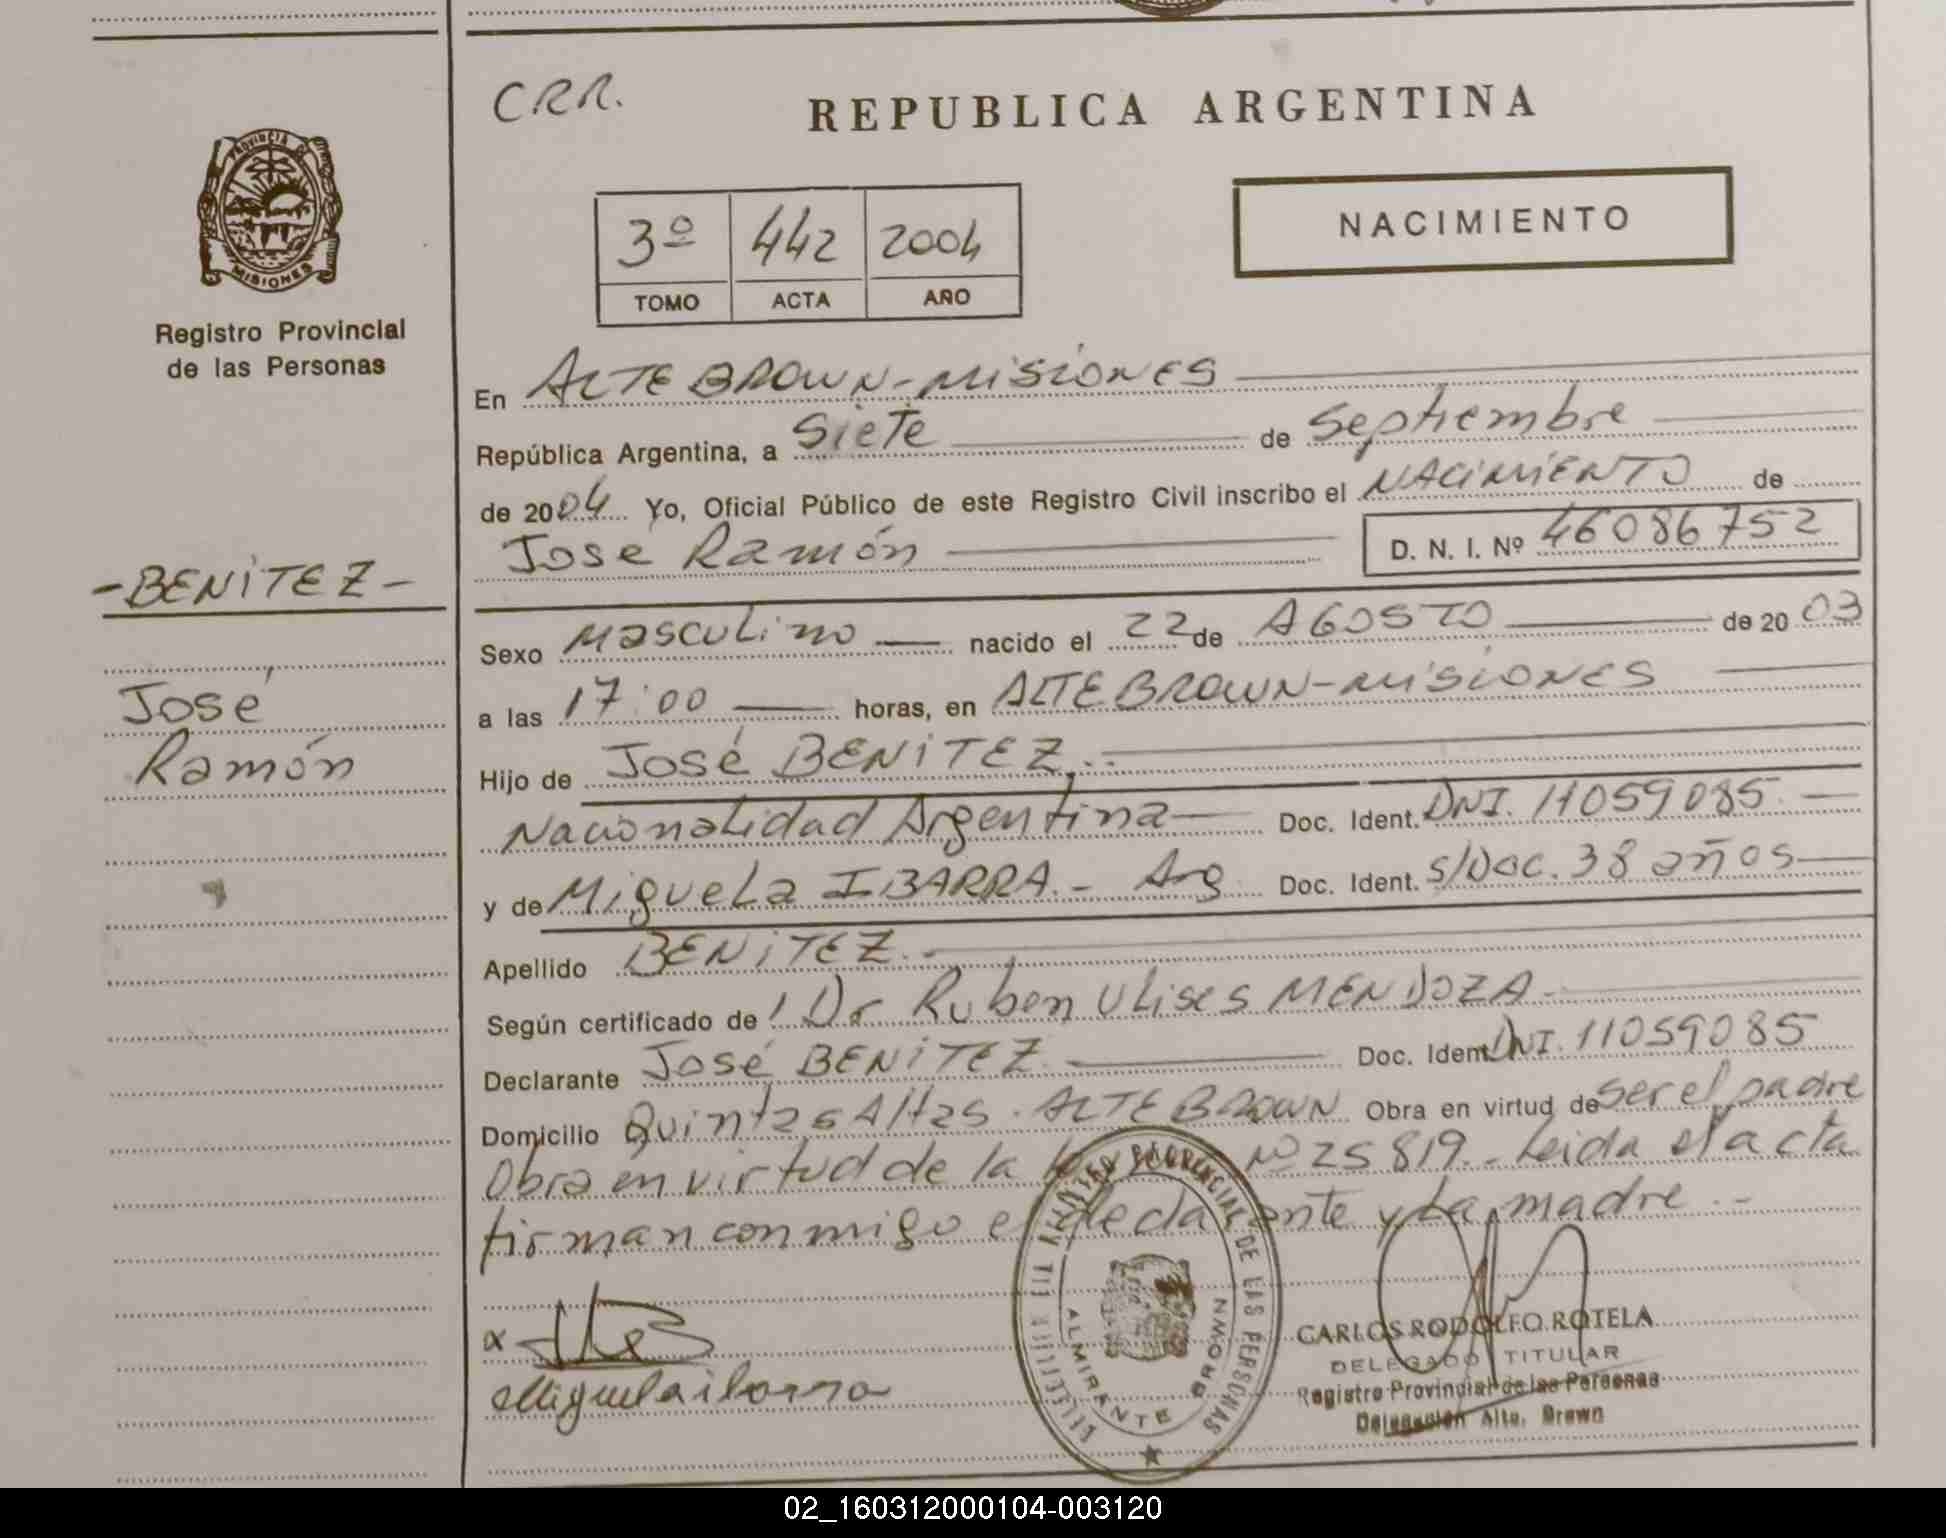 PROVINCIA DE
MISIONES
Registro Provincial
de las Personas
-BENITEZ-
José
Ramón
C.R.R.
REPUBLICA ARGENTINA
3º 442 2004
TOMO ACTA AÑO
NACIMIENTO
En ALTE BROWN-MISIONES
República Argentina, a Siete de Septiembre
de 2004 Yo, Oficial Público de este Registro Civil inscribo el NACIMIENTO de
José Ramón D. N. I. Nº 46086752
Sexo Masculino nacido el 22 de AGOSTO de 2003
a las 17:00 horas, en ALTE BROWN-MISIONES
Hijo de José BENITEZ.-
Nacionalidad Argentina Doc. Ident. DNI. 11059085.
y de Miguela IBARRA.- Arg Doc. Ident. S/Doc. 38 años
Apellido BENITEZ.-
Según certificado de Dr Ruben Ulises MENDOZA.
Declarante José BENITEZ. Doc. Ident. DNI. 11059085
Domicilio Quintas Altas. ALTE BROWN Obra en virtud de ser el padre
Obra en virtud de la Nº 25819.- Leida el acta
firman conmigo el declarante y la madre.-
Miguela ibarra
PROVINCIAL DE LAS PERSONAS
ALMIRANTE BROWN
CARLOS RODOLFO ROTELA
DELEGADO TITULAR
Registro Provincial de las Personas
Delegación Alte. Brown
02_160312000104-003120